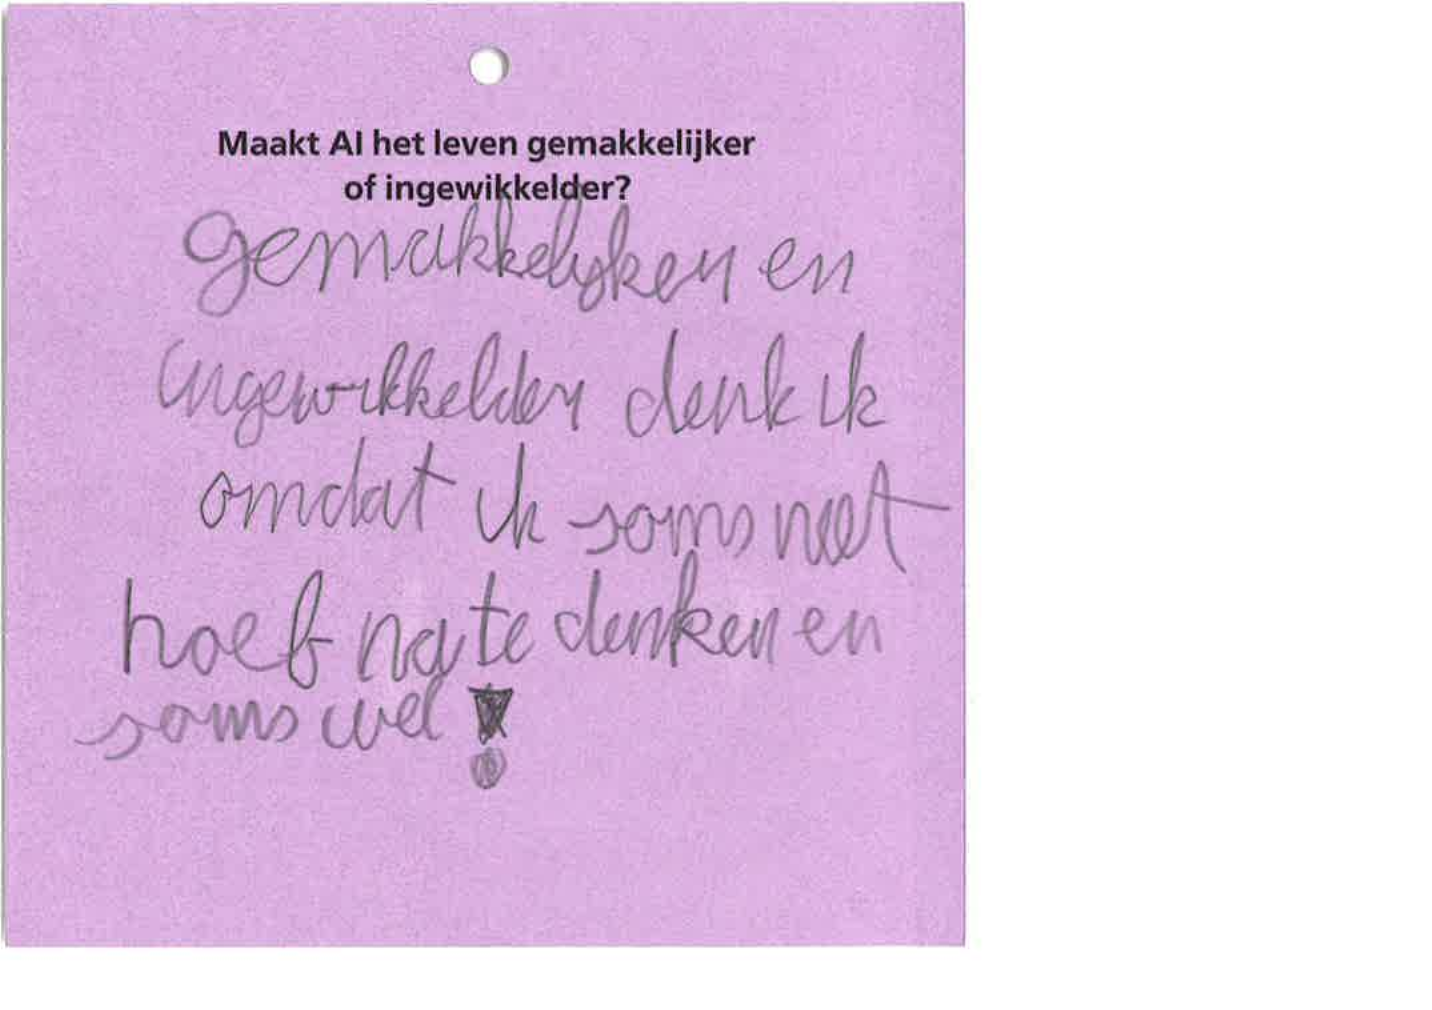 Maakt AI het leven gemakkelijker
of ingewikkelder?
gemakkelijker en
ingewikkelder denk ik
omdat ik soms niet
hoef na te denken en
soms wel !